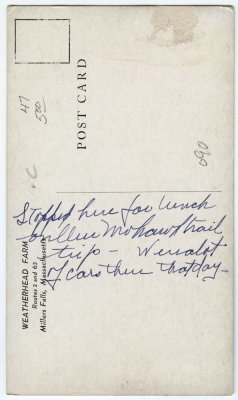 POST CARD
47
500
C
090
Stopped here for lunch
on the Mohawk trail
trip - 
of cars there that day -
WEATHERHEAD FARM
Routes 2 and 63
Millers Falls, Massachusetts